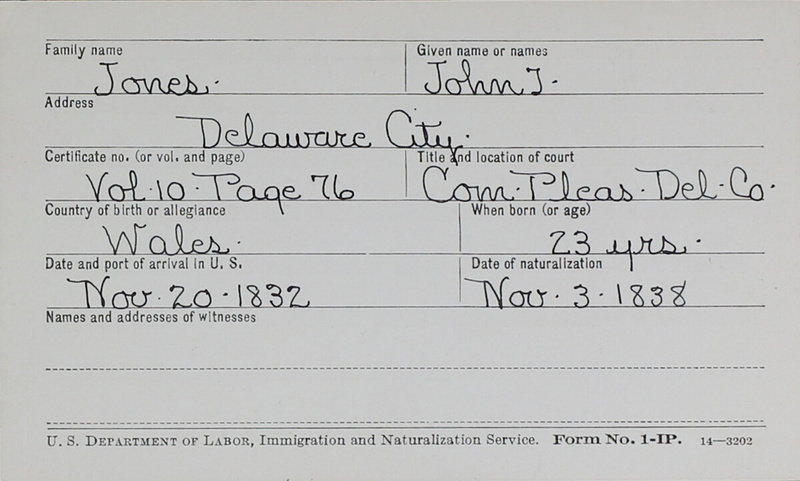 Family name Given name or names
Jones. John J.
Address
Delaware City.
Certificate no. (or vol. and page) Title and location of court
Vol. 10. Page 76 Com. Pleas. Del. Co.
Country of birth or allegiance When born (or age)
Wales. 23 yrs.
Date and port of arrival in U. S. Date of naturalization
Nov. 20. 1832 Nov. 3. 1838
Names and addresses of witnesses
U. S. DEPARTMENT OF LABOR, Immigration and Naturalization Service. Form No. 1-IP. 14—3202